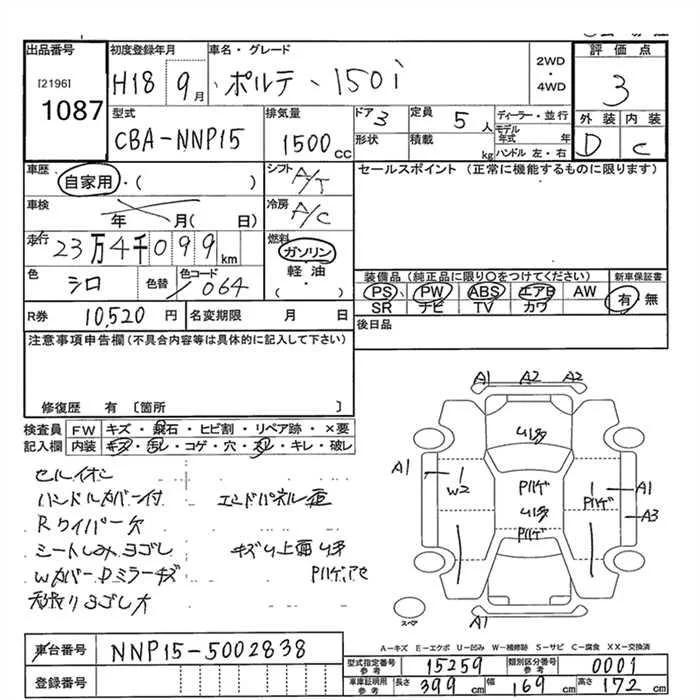 出品番号 初度登録年月 車名・グレード 2WD 評価点
[2196] H18 9月 ポルテ 150i ・ 3
1087 4WD
型式 排気量 ドア 3 定員 5人 ディーラー・並行 外装 内装
CBA-NNP15 1500cc 形状 積載 kg モデル年式 年 D C
ハンドル 左・右
車歴 自家用・( ) シフト A/T セールスポイント (正常に機能するものに限ります)
車検 年 月( 日) 冷房 A/C
走行 23万4千099km 燃料 ガソリン
色 シロ 色替 色コード 064 軽油
( )
装備品(純正品に限り○をつけてください) 新車保証書
PS PW ABS エアB AW 有・無
SR ナビ TV カワ
R券 10,520円 名変期限 月 日 後日品
注意事項申告欄(不具合内容等は具体的に記入して下さい)
修復歴 有 [箇所 ]
検査員 FW キズ・飛石・ヒビ割・リペア跡・×要
記入欄 内装 キズ・汚レ・コゲ・穴・スレ・キレ・破レ
セルイオン
ハンドルカバー付 エンドパネル亜
Rワイパー欠
シートしみヨゴレ キズ
Wカバー Dミラーキズ
ヨゴレ大
A1 A2 A2
A1
W2
Pハゲ
Pハゲ
A1
A3
A1
スペア
A-キズ E-エクボ U-凹み W-補修跡 S-サビ C-腐食 XX-交換済
車台番号 NNP15-5002838
登録番号
型式指定番号 参考 15259 類別区分番号 参考 0001
車庫証明用 参考 長さ 399cm 幅 169cm 高さ 172cm